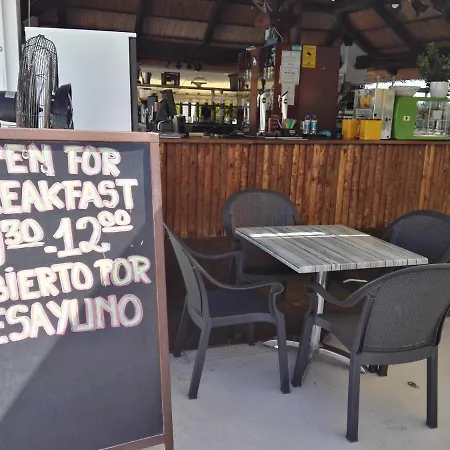 PEN FOR
REAKFAST
30-12:00
BIERTO POR
ESAYUNO